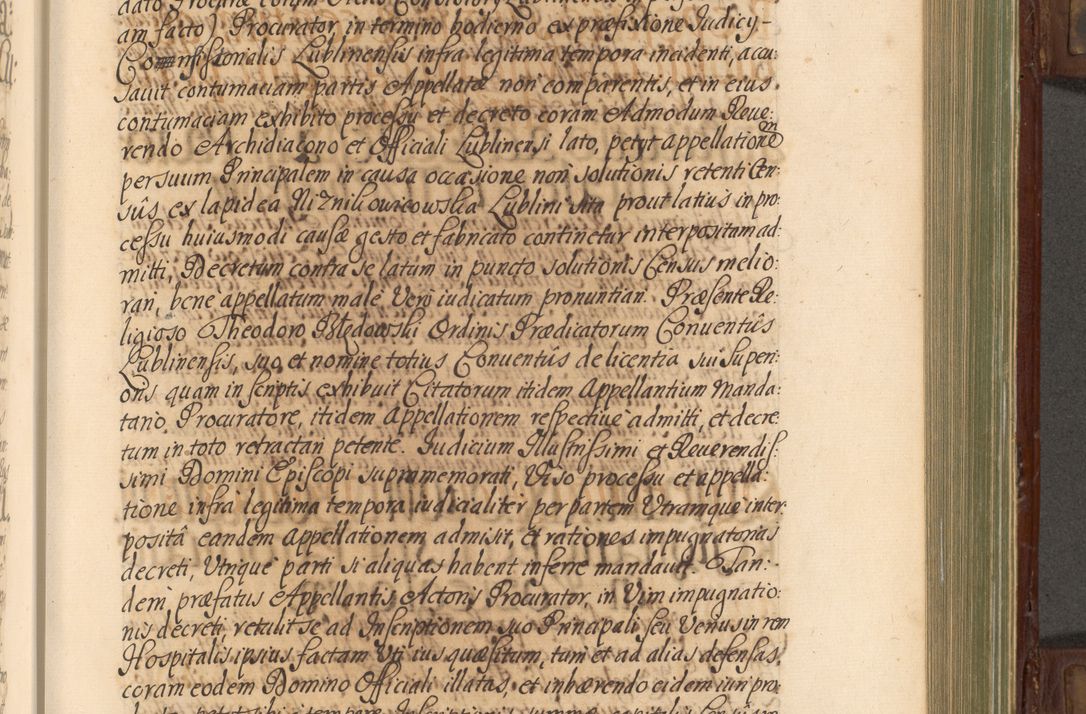 am facto) Procurator, in termino hodierno ex præfixione Iudicy
Consistorialis Lublinensis infra legitima tempora incidenti, accu:
sauit contumaciam partis Appellatæ non comparentis, et in eius
contumaciam exhibito processu et decreto coram Admodum Reue:
rendo Archidiacono et Officiali Lublinensi lato, petyt appellationem
per suum Principalem in causa occasione non solutionis retenti Cen:
sûs ex lapidea Niznikowicowska Lublini sita prout latius in pro:
cessu huiusmodi causæ gesto et fabricato continetur interpositam ad:
mitti, Decretum contra se latum in puncto solutionis Census melio:
rari, bene appellatum male Vero iudicatum pronuntiari. Præsente Re:
ligioso Theodoro Błędowski Ordinis Prædicatorum Conventûs
Lublinensis, suo et nomine totius Conventûs de licentia sui Superi:
oris quam in scriptis exhibuit Citatorum itidem Appellantium Manda:
tario Procuratore, itidem Appellationem respective admitti, et decre:
tum in toto retractari petente. Iudicium Illustrissimi et Reuerendis:
simi Domini Episcopi supramemorati, Viso processu et appella:
tione infra legitima tempora iudicialiter per partem Utramque inter:
positâ eandem Appellationem admisit, et rationes impugnatorias
decreti, Utrique parti si aliquas habent inferre mandauit. Tan:
dem præfatus Appellantis Actoris Procurator, in Vim impugnatio:
nis decreti retulit se ad Inscriptionem suo Principali seu Verius in rem
Hospitalis ipsius factam Uti ius quæsitum, tum et ad alias defensas,
coram eodem Domino Officiali illatas, et inhærendo eidem iuri pro: